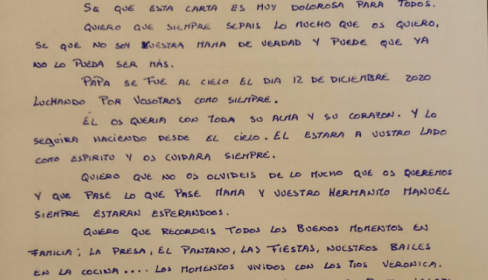 SE QUE ESTA CARTA ES MUY DOLOROSA PARA TODOS.
QUIERO QUE SIEMPRE SEPAIS LO MUCHO QUE OS QUIERO,
SE QUE NO SOY VUESTRA MAMA DE VERDAD Y PUEDE QUE YA
NO LO PUEDA SER MÁS.
PAPA SE FUE AL CIELO EL DIA 12 DE DICIEMBRE 2020
LUCHANDO POR VOSOTROS COMO SIEMPRE.
ÉL OS QUERIA CON TODA SU ALMA Y SU CORAZON. Y LO
SEGUIRA HACIENDO DESDE EL CIELO. EL ESTARA A VUSTRO LADO
COMO ESPIRITU Y OS CUIDARA SIEMPRE.
QUIERO QUE NO OS OLVIDEIS DE LO MUCHO QUE OS QUEREMOS
Y QUE PASE LO QUE PASE MAMA Y VUESTRO HERMANITO MANUEL
SIEMPRE ESTARAN ESPERANDOOS.
QUERO QUE RECORDEIS TODOS LOS BUENOS MOMENTOS EN
FAMILIA; LA PRESA, EL PANTANO, LAS FIESTAS, NUESTROS BAILES
EN LA COCINA.... LOS MOMENTOS VIVIDOS CON LOS TIOS VERONICA.